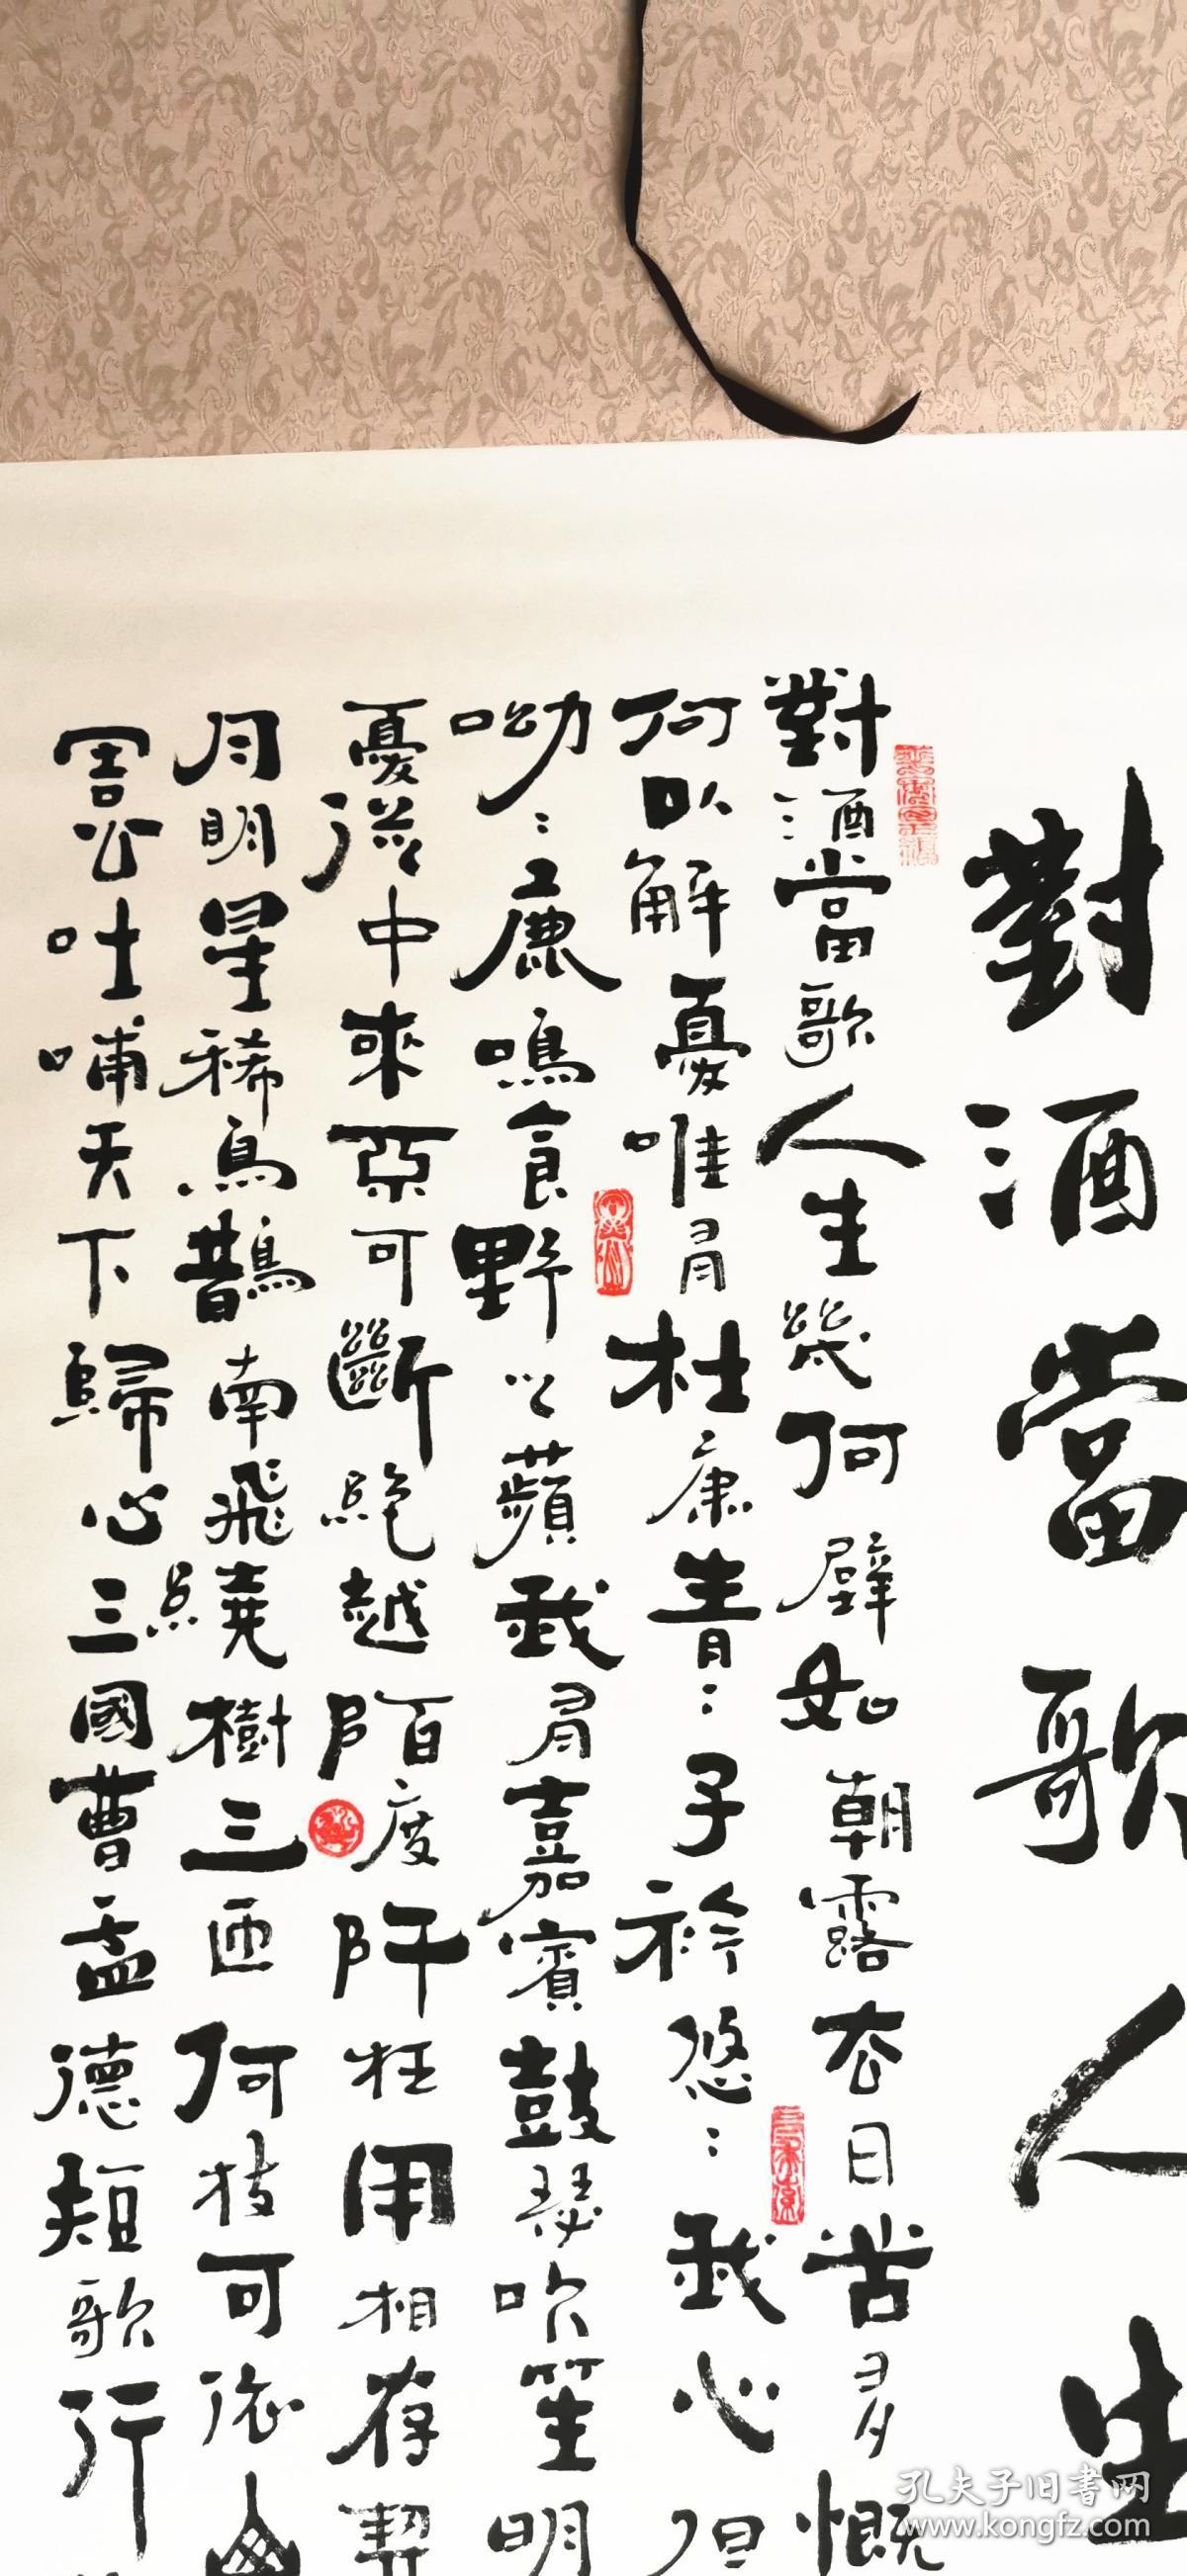 對酒當歌人生
對酒當歌人生幾何譬如朝露去日苦多慨
何以解憂唯有杜康青〻子衿悠〻我心但
呦〻鹿鳴食野以蘋我有嘉賓鼓瑟吹笙明
憂從中來不可斷絕越陌度阡枉用相存契
月明星稀烏鵲南飛繞樹三匝何枝可依山
周公吐哺天下歸心三國曹孟德短歌行
孔夫子旧书网
www.kongfz.com